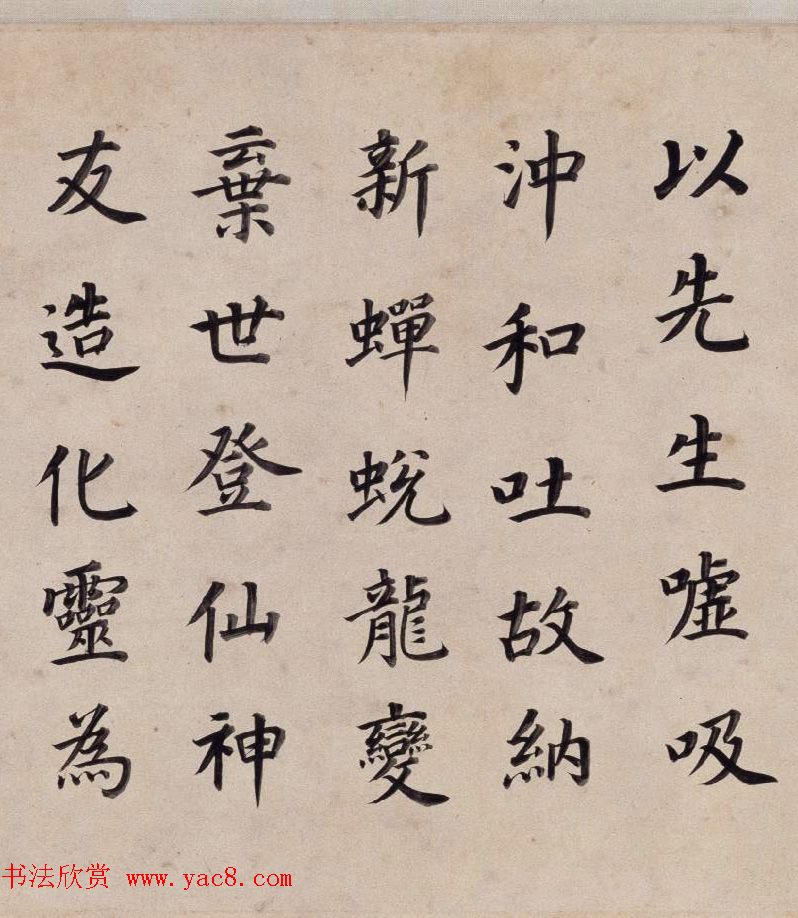 以先生嘘吸
沖和吐故納
新蟬蛻龍變
棄世登仙神
友造化靈為
书法欣赏 www.yac8.com